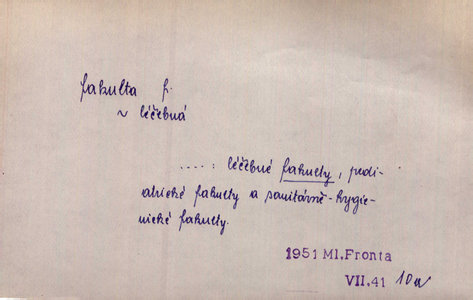 fakulta f.
~ léčebná
....: léčebné fakulty, pedi-
atrické fakulty a sanitárně-hygie-
nické fakulty.
1951 Ml.Fronta
VII.41